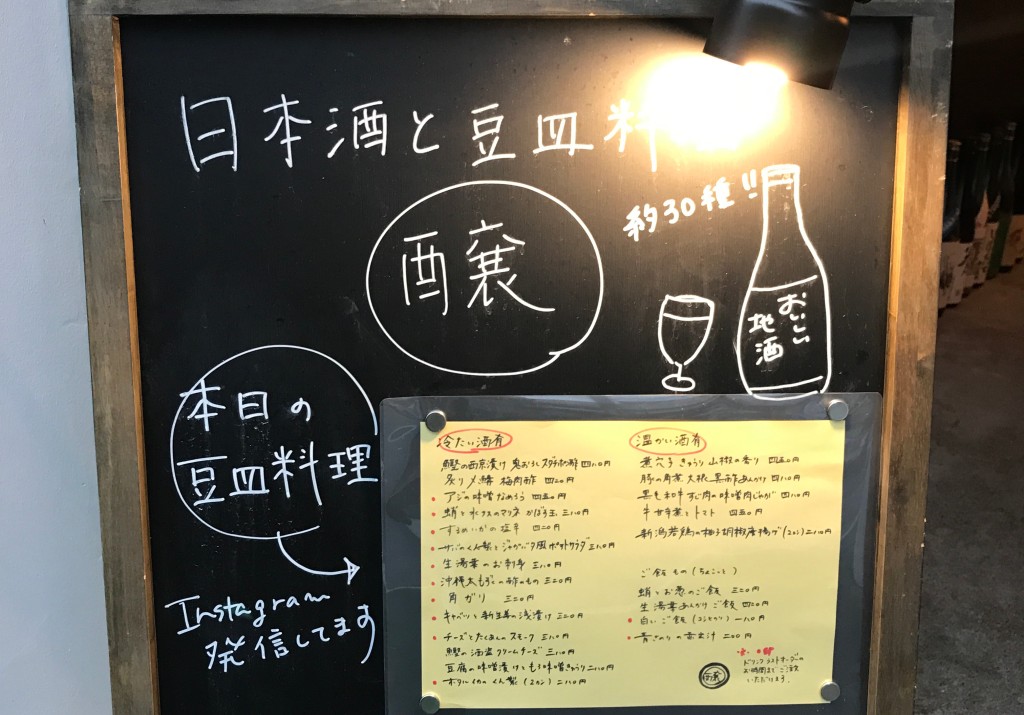 日本酒と豆皿料
醸
約30種!!
おいしい
地酒
本日の
豆皿料理
Instagram
発信してます
冷たい酒肴
鰹の西京漬け 鬼おろしスダチポン酢 四八〇円
炙り〆鯖 梅肉酢 四二〇円
アジの味噌なめろう 四五〇円
蛸と水タコのマリネ かぼす玉 三八〇円
するめいかの塩辛 四二〇円
サバのくん製とジャガバタ風ポテトサラダ 三八〇円
生湯葉のお刺身 三八〇円
沖縄太もずくの酢のもの 三二〇円
角ガリ 三二〇円
キャベツと新生姜の浅漬け 三二〇円
チーズとたくあんのスモーク 三八〇円
鰹の酒盗クリームチーズ 三八〇円
豆腐の味噌漬けともろ味噌きゅうり 二八〇円
ホタルイカのくん製(2カン) 二八〇円
温かい酒肴
煮穴子きゅうり 山椒の香り 四五〇円
豚の角煮 大根 黒酢あんかけ 四八〇円
黒毛和牛すじ肉の味噌肉じゃが 四八〇円
牛すじ煮とトマト 四五〇円
新潟若鶏の柚子胡椒唐揚げ(2コ) 二八〇円
ご飯もの(ちょこっと)
蛸とお葱のご飯 三二〇円
生湯葉あんかけご飯 四二〇円
白いご飯(コシヒカリ) 一八〇円
青さのりの赤出汁 二〇〇円
ドリンクラストオーダーの
お時間までご飲
いただけます。